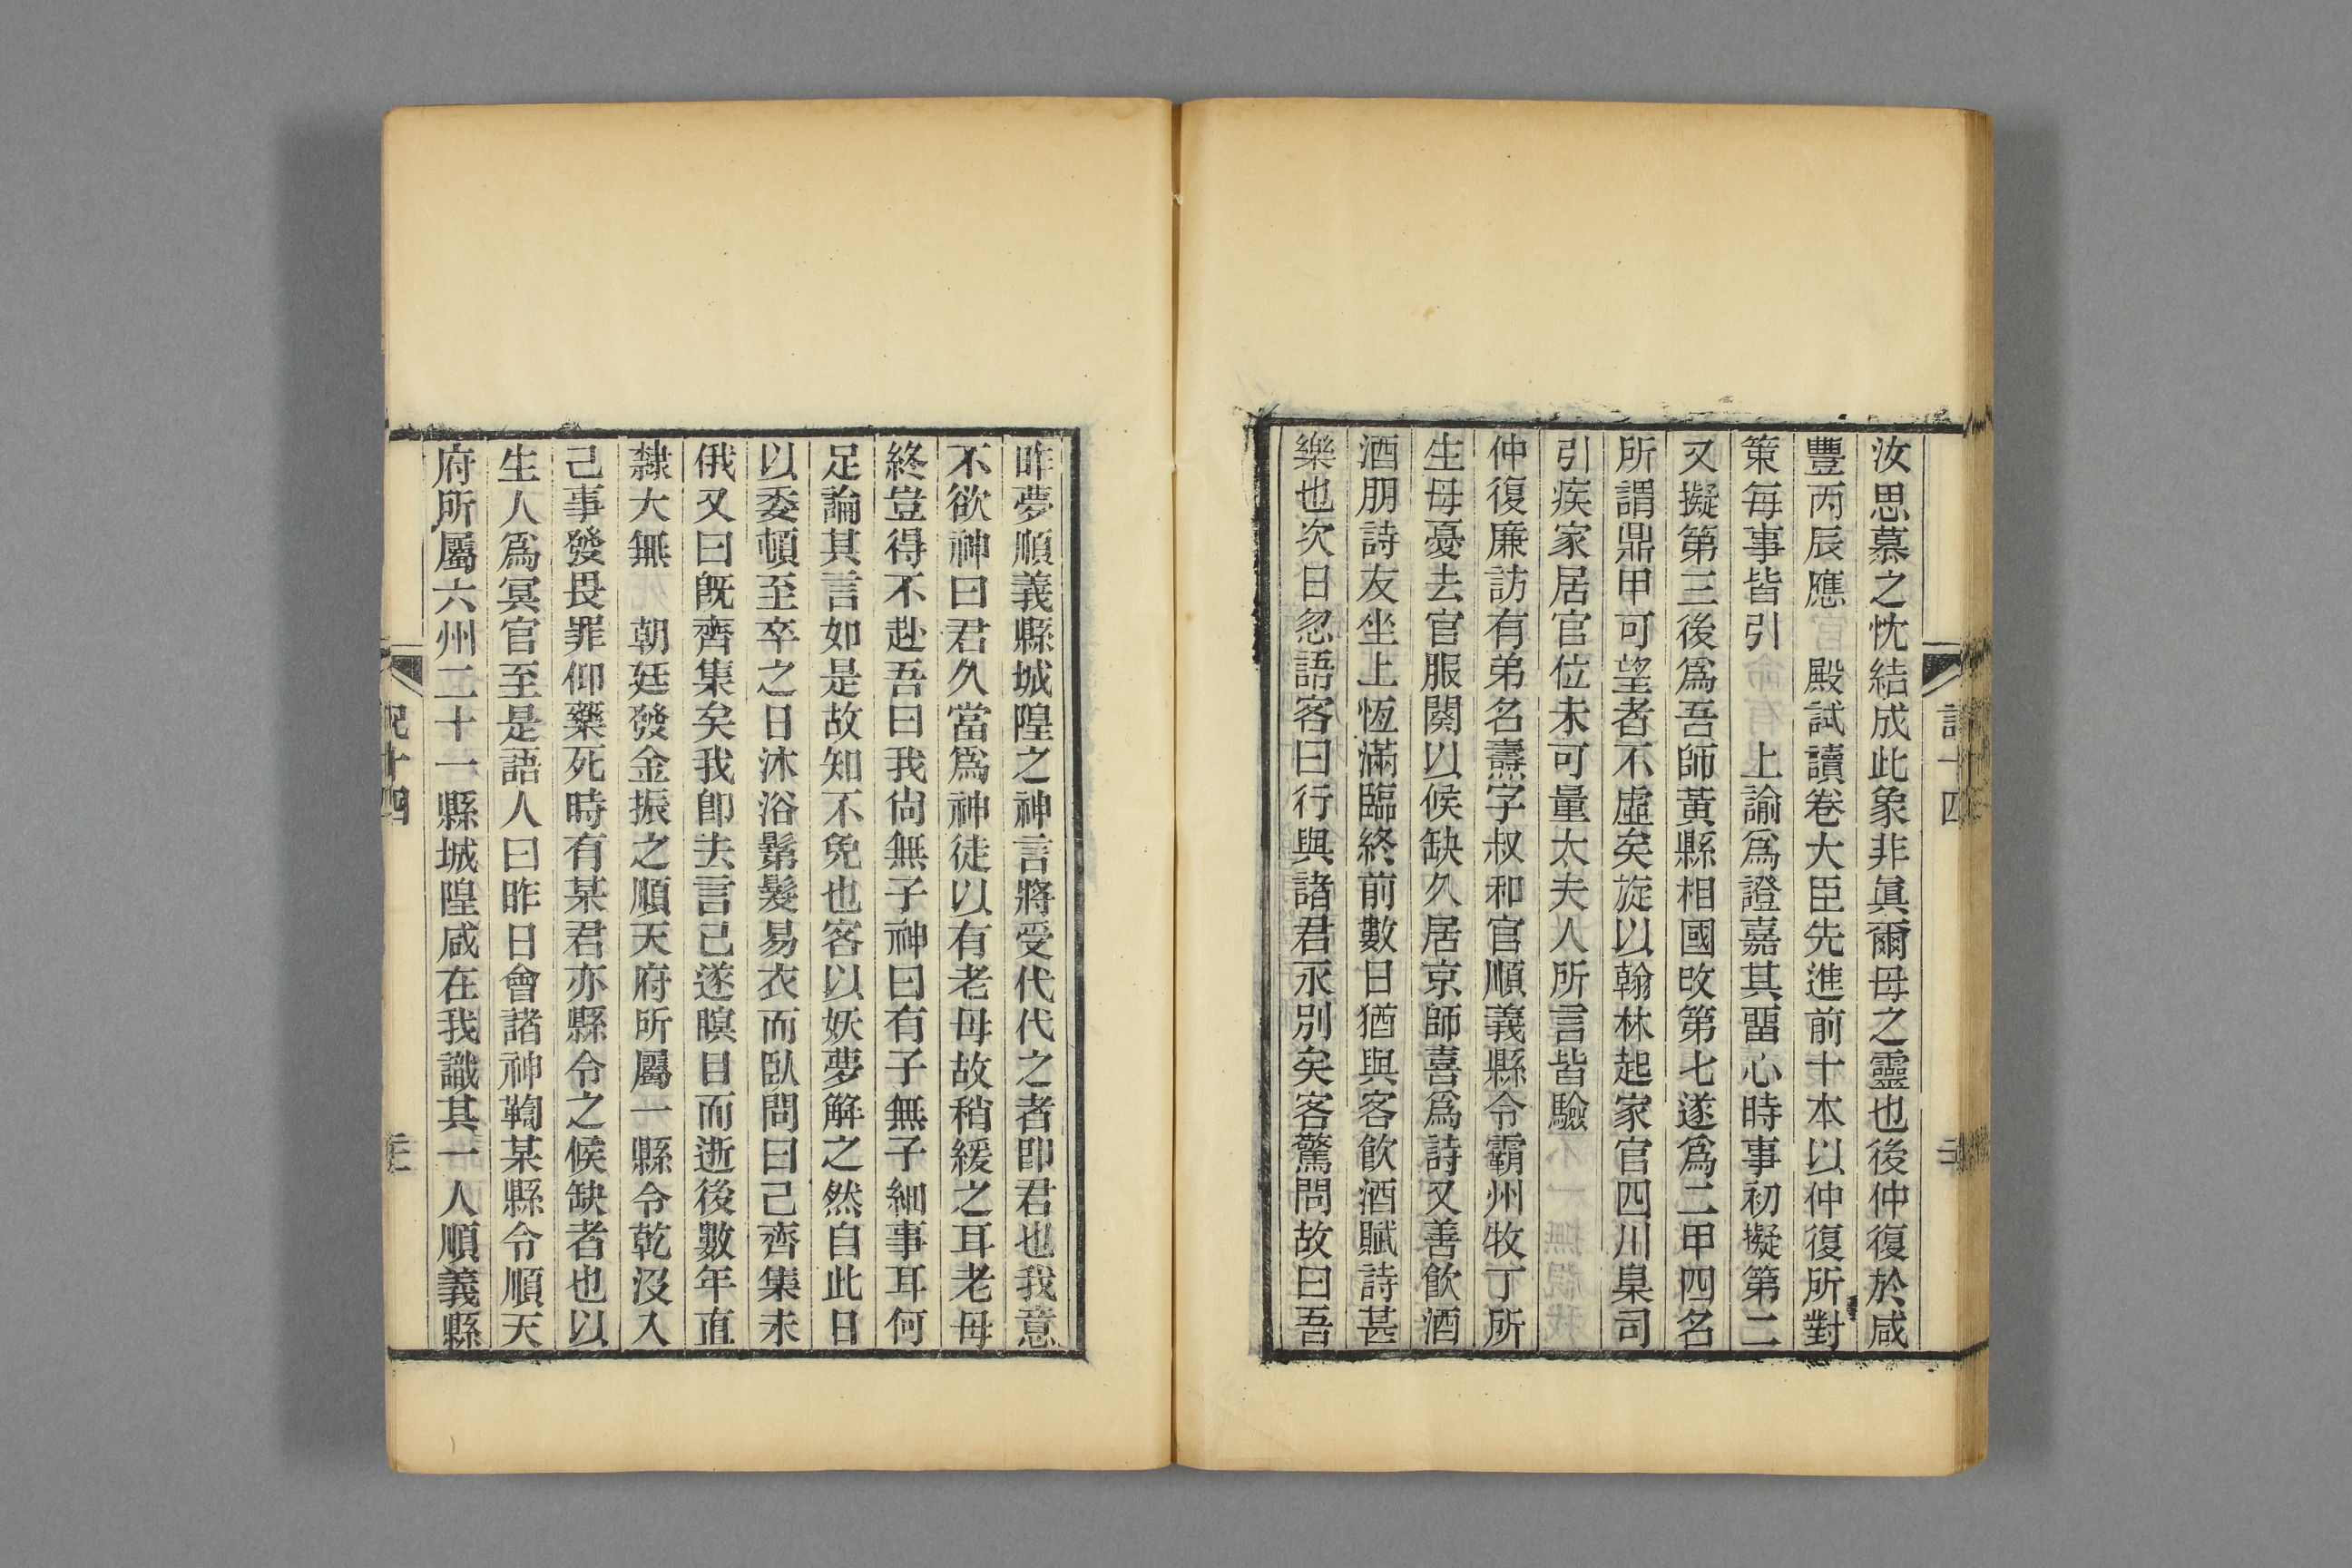 汝思慕之忱結成此象非眞爾母之靈也後仲復於咸
豐丙辰應　殿試讀卷大臣先進前十本以仲復所對
策每事皆引　上諭爲證嘉其畱心時事初擬第二
又擬第三後爲吾師黃縣相國改第七遂爲二甲四名
所謂鼎甲可望者不虛矣旋以翰林起家官四川臬司
引疾家居官位未可量太夫人所言皆驗
仲復廉訪有弟名燾字叔和官順義縣令霸州牧丁所
生母憂去官服闋以候缺久居京師喜爲詩又善飮酒
酒朋詩友坐上恆滿臨終前數日猶與客飮酒賦詩甚
樂也次日忽語客曰行與諸君永別矣客驚問故曰吾
昨夢順義縣城隍之神言將受代代之者卽君也我意
不欲神曰君久當爲神徒以有老母故稍緩之耳老母
終豈得不赴吾曰我尙無子神曰有子無子細事耳何
足論其言如是故知不免也客以妖夢解之然自此日
以委頓至卒之日沐浴鬀髮易衣而臥問曰己齊集未
俄又曰旣齊集矣我卽去言己遂瞑目而逝後數年直
隸大無　朝廷發金振之順天府所屬一縣令乾沒入
己事發畏罪仰藥死時有某君亦縣令之候缺者也以
生人爲冥官至是語人曰昨日會諸神鞫某縣令順天
府所屬六州二十一縣城隍咸在我識其一人順義縣